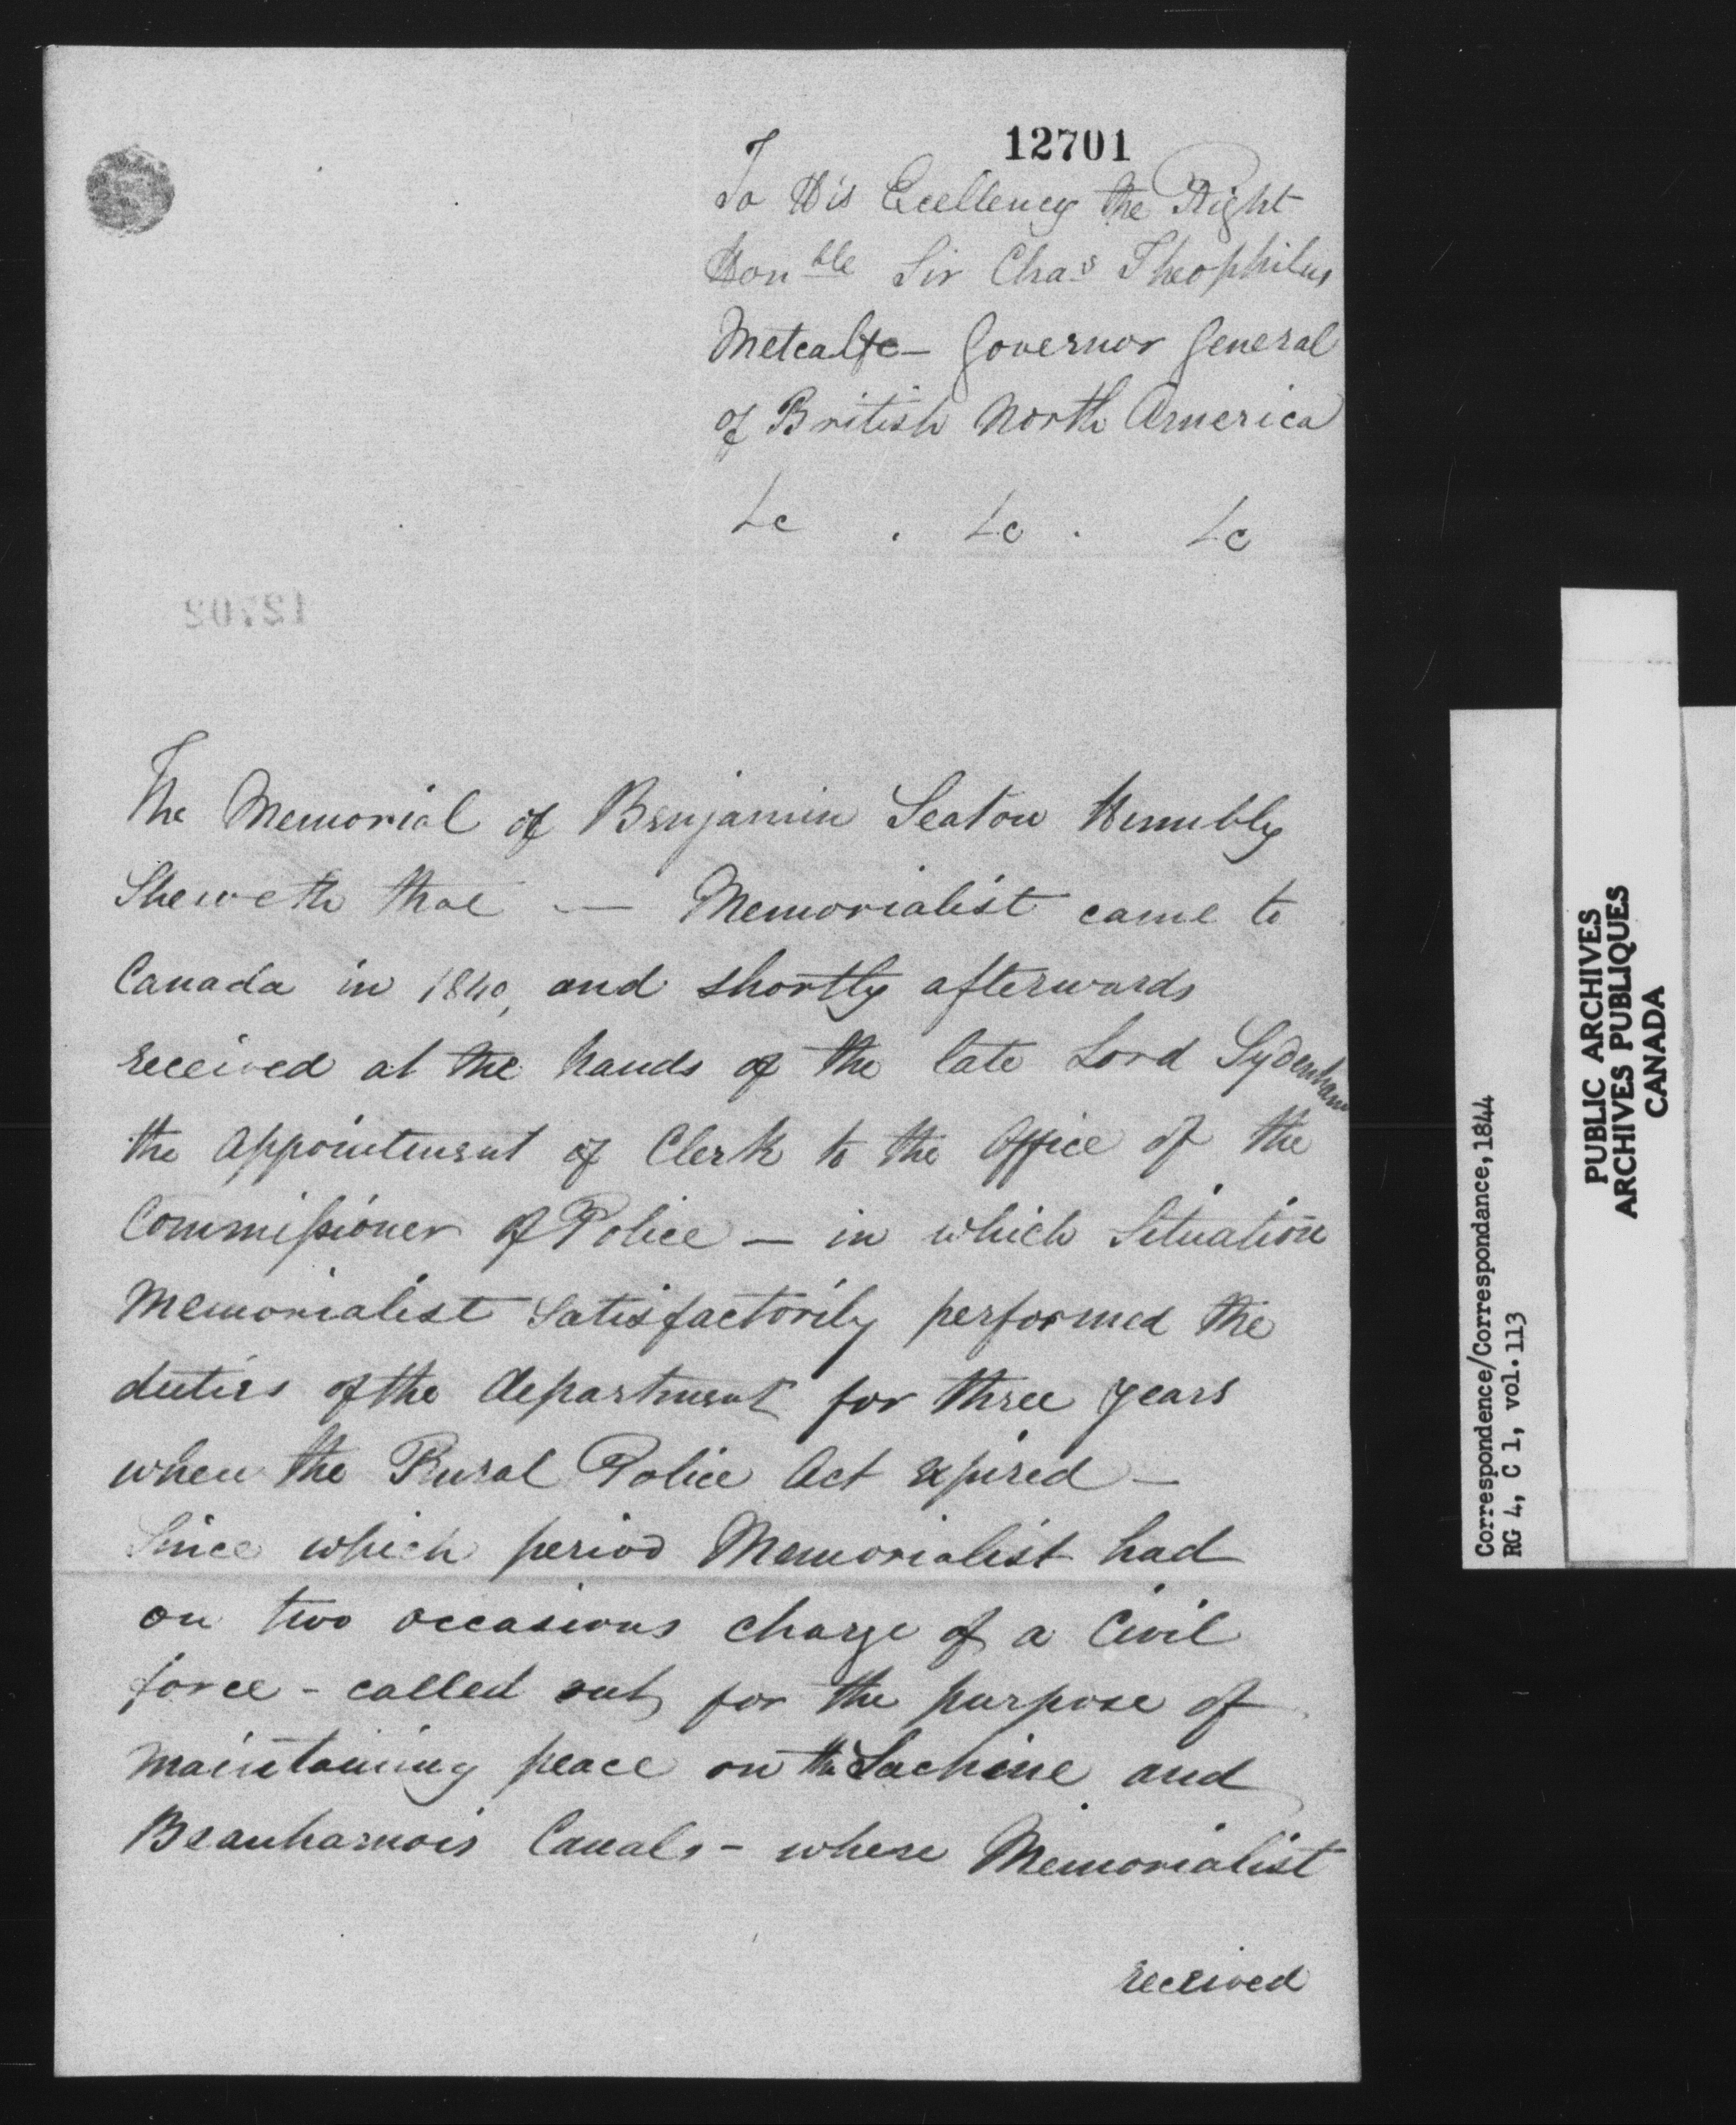 12701
To His Ecellency the Right
Honble Sir Chas Theophilus
Metcalfe — Governor General
of British North America
&c . &c . &c
The Memorial of Benjamin Seaton Humbly
Sheweth that — Memorialist came to
Canada in 1840, and shortly afterwards
received at the hands of the late Lord Sydenham
the appointment of Clerk to the Office of the
Commissioner of Police — in which Situation
Memorialist Satisfactorily performed the
duties of the department for three years
when the Rural Police Act expired —
Since which period Memorialist had
on two occasions charge of a Civil
force - called out, for the purpose of
maintaining peace on the Lachine and
Beauharnois Canals - where Memorialist
received
Correspondence/Correspondance, 1844
RG 4, C 1, vol. 113
PUBLIC ARCHIVES
ARCHIVES PUBLIQUES
CANADA